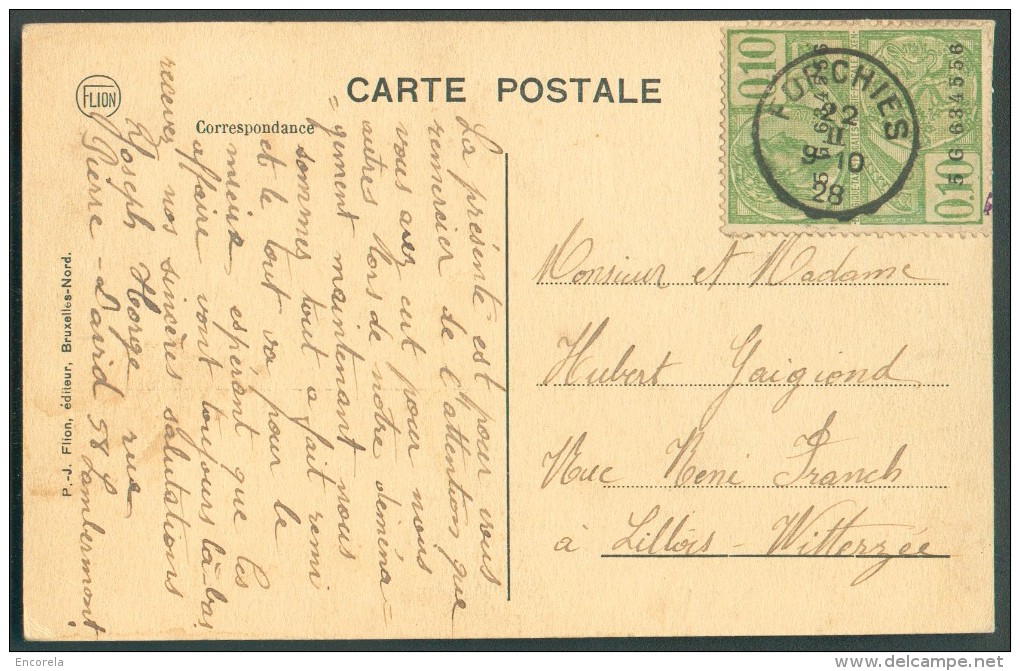 FLION
CARTE POSTALE
Correspondance
La présente est pour vous
remercier de l'attentions que
vous avez eut pour nous
autres lors de notre déména-
=gement maintenant nous
sommes tout a fait remi
et le tout va pour le
mieux esperant que les
affaire vont toujours là-bas
recever nos sincères salutations
Joseph rue
Pierre - David 58 Lambermont
P.-J. Flion, éditeur, Bruxelles-Nord.
0.10
0.10
5 G 634556
FORCHIES
22
II
9-10
28
Monsieur et Madame
Hubert
Rue René Franck
à Lillois - Witterzée
Encorela
delcampe.net